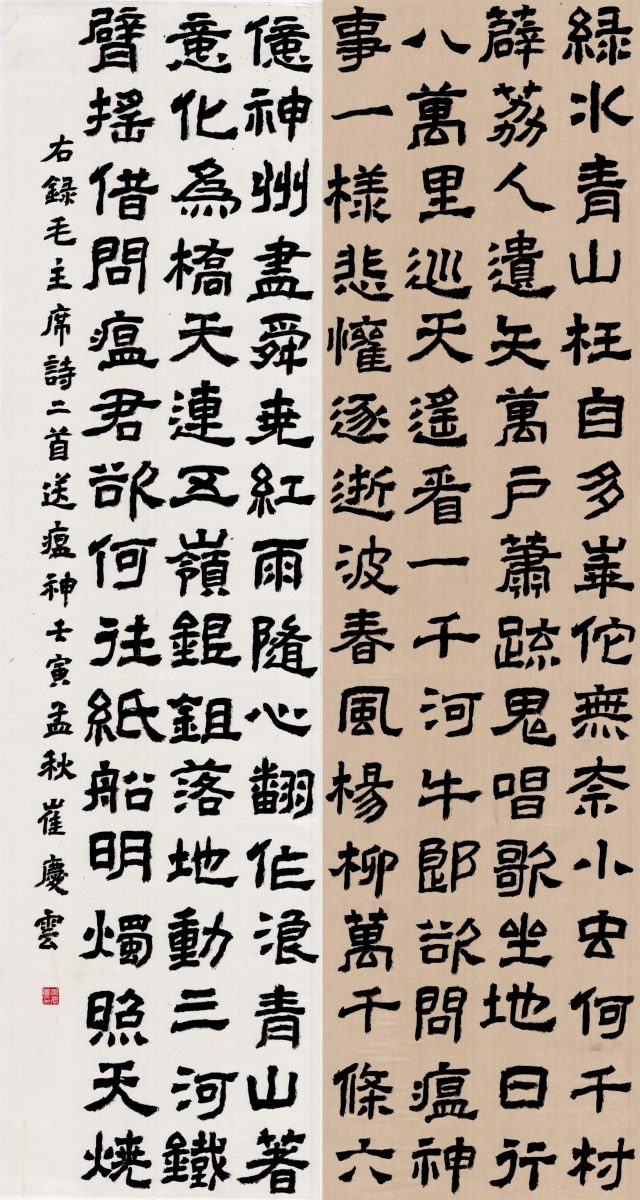 綠水青山枉自多崋佗無奈小虫何千村
薜荔人遺矢萬户蕭疏鬼唱歌坐地日行
八萬里巡天遙看一千河牛郎欲問瘟神
事一樣悲懽逐逝波春風楊柳萬千條六
億神州盡舜堯紅雨隨心翻作浪青山著
意化為橋天連五嶺銀鉏落地動三河鐵
臂搖借問瘟君欲何往紙船明燭照天燒
右録毛主席詩二首送瘟神壬寅孟秋崔慶雲